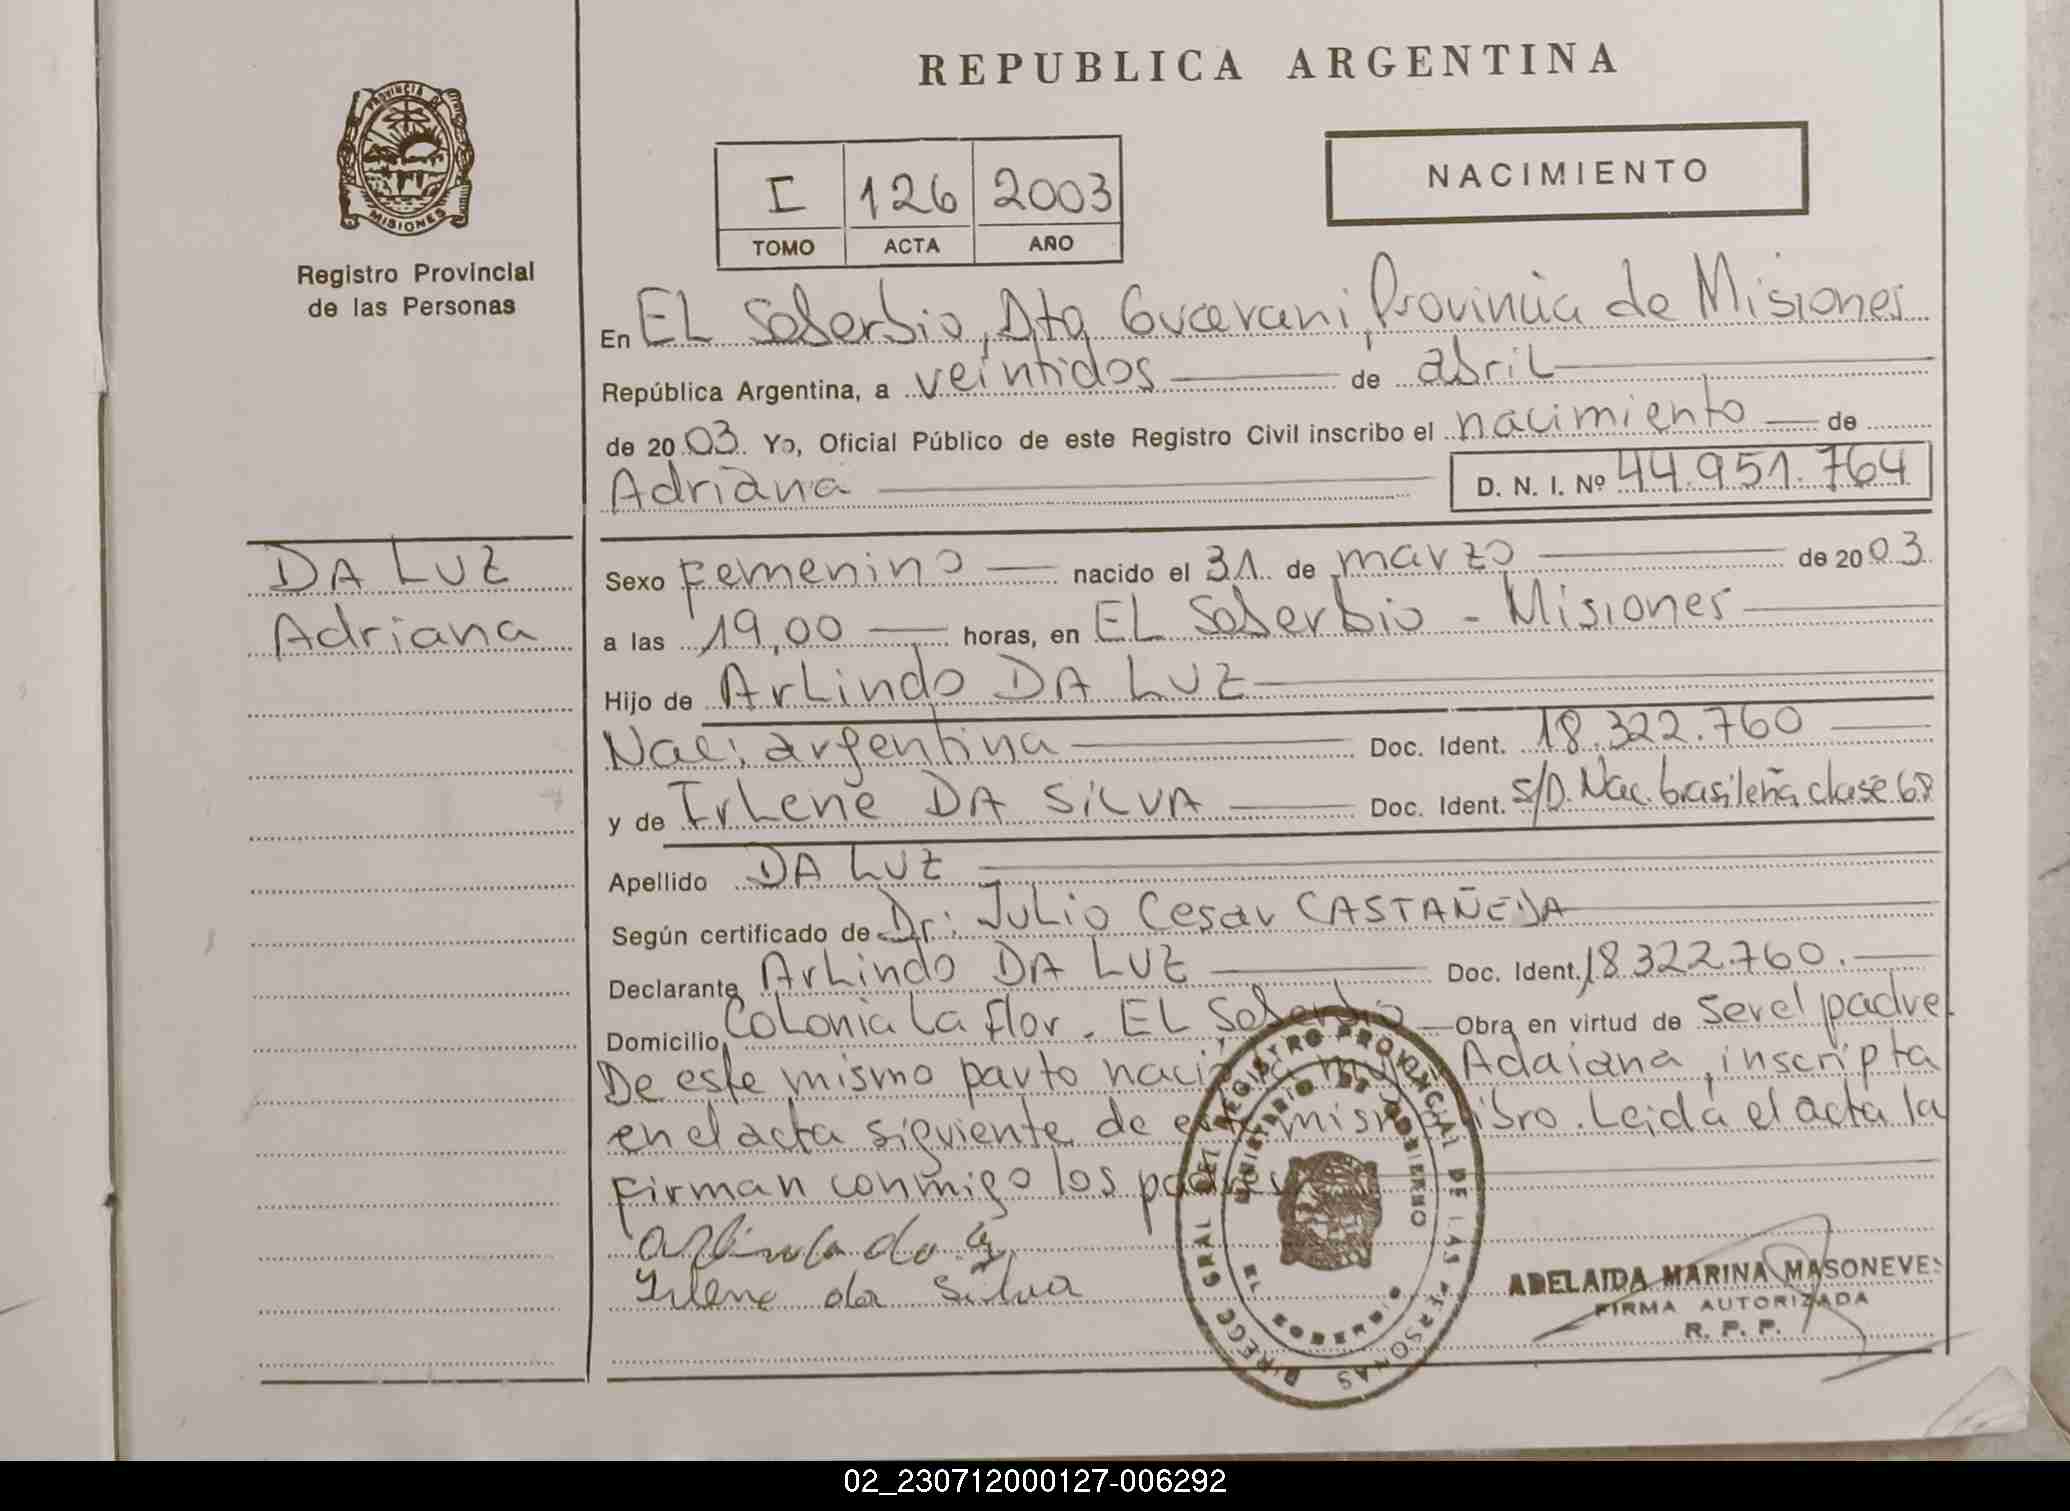 REPUBLICA ARGENTINA
PROVINCIA DE
MISIONES
Registro Provincial
de las Personas
I 126 2003
TOMO ACTA AÑO
NACIMIENTO
En EL Soberbio, Dto Guarani, Provincia de Misiones
República Argentina, a veintidos de abril
de 2003. Yo, Oficial Público de este Registro Civil inscribo el nacimiento de
Adriana D. N. I. Nº 44.951.764
DA LUZ
Adriana
Sexo Femenino nacido el 31 de marzo de 2003
a las 19,00 horas, en EL Soberbio - Misiones
Hijo de ArLindo DA LUZ
Nac: argentina Doc. Ident. 18.322.760
y de IrLene DA SILVA Doc. Ident. S/D. Nac. brasileña clase 68
Apellido DA LUZ
Según certificado de Dr: Julio Cesar CASTAÑEDA
Declarante ArLindo DA LUZ Doc. Ident. 18322.760.
Domicilio Colonia La flor. EL Soberbio Obra en virtud de ser el padre
De este mismo parto nació Adaiana, inscripta
en el acta siguiente de este mismo libro. Leida el acta la
Firman conmigo los padres
Irlene da Silva
DIRECC GRAL DEL REGISTRO PROVINCIAL DE LAS PERSONAS
MINISTERIO DE GOBIERNO
EL SOBERBIO
ADELAIDA MARINA MASONEVES
FIRMA AUTORIZADA
R. P. P.
02_230712000127-006292